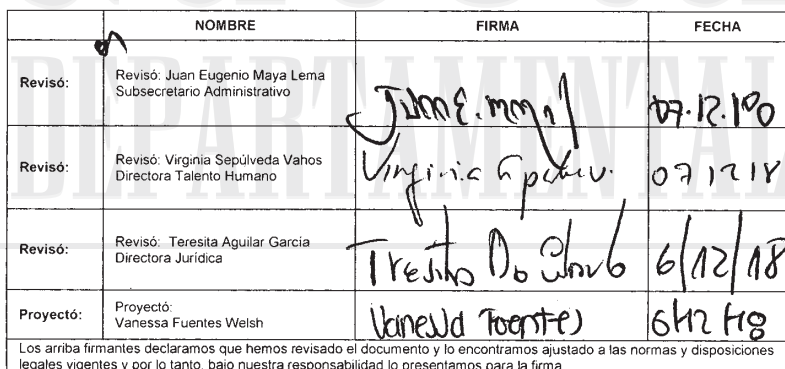 NOMBRE FIRMA FECHA
Revisó: Revisó: Juan Eugenio Maya Lema
Subsecretario Administrativo
07.12.
Revisó: Revisó: Virginia Sepúlveda Vahos
Directora Talento Humano
Virginia 07 12 18
Revisó: Revisó: Teresita Aguilar García
Directora Jurídica
6/12/18
Proyectó: Proyectó:
Vanessa Fuentes Welsh
Vanessa Fuentes 6/12/18
Los arriba firmantes declaramos que hemos revisado el documento y lo encontramos ajustado a las normas y disposiciones
legales vigentes y por lo tanto, bajo nuestra responsabilidad lo presentamos para la firma.
DEPARTAMENTAL